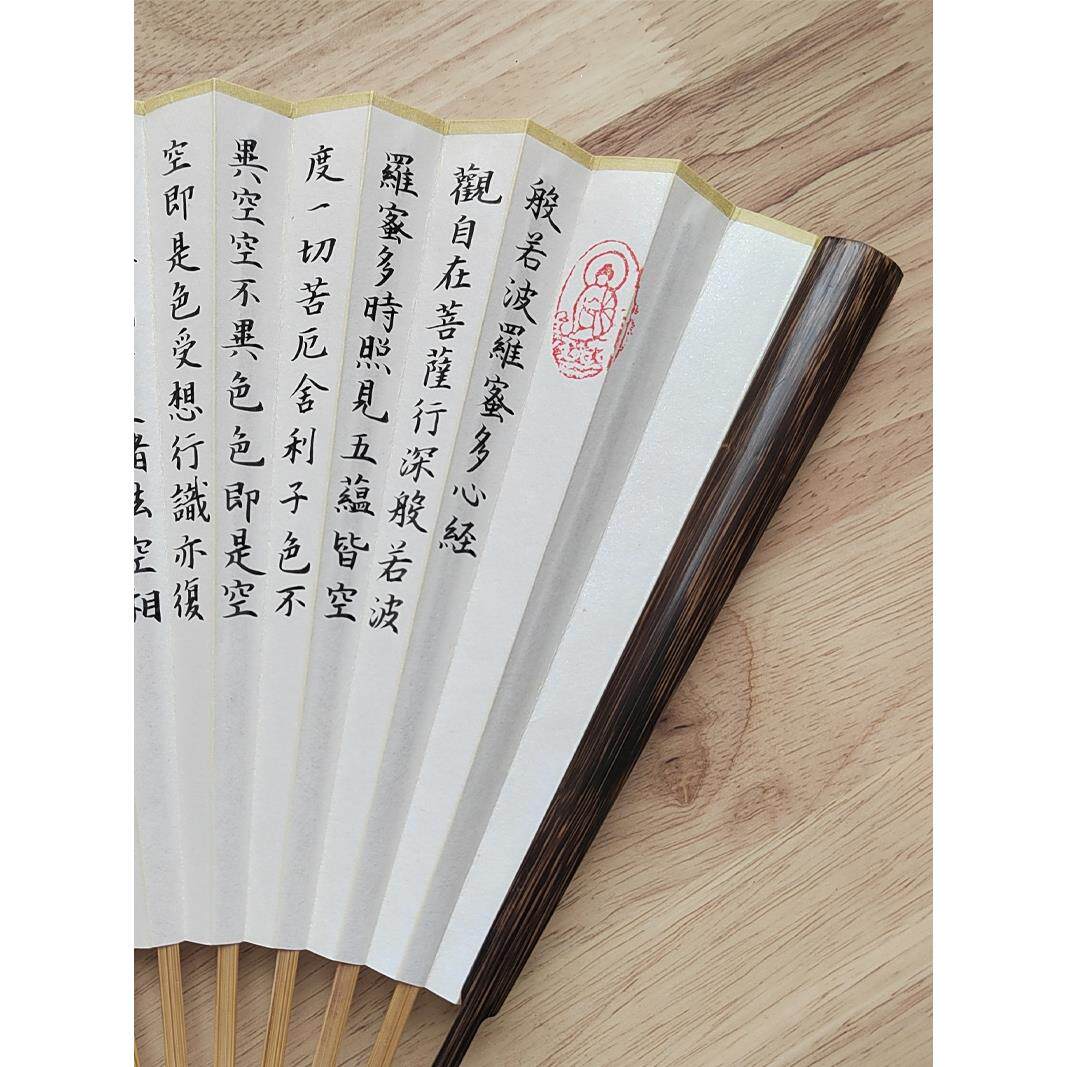 般若波羅蜜多心経
觀自在菩薩行深般若波
羅蜜多時照見五蘊皆空
度一切苦厄舍利子色不
異空空不異色色即是空
空即是色受想行識亦復
空相